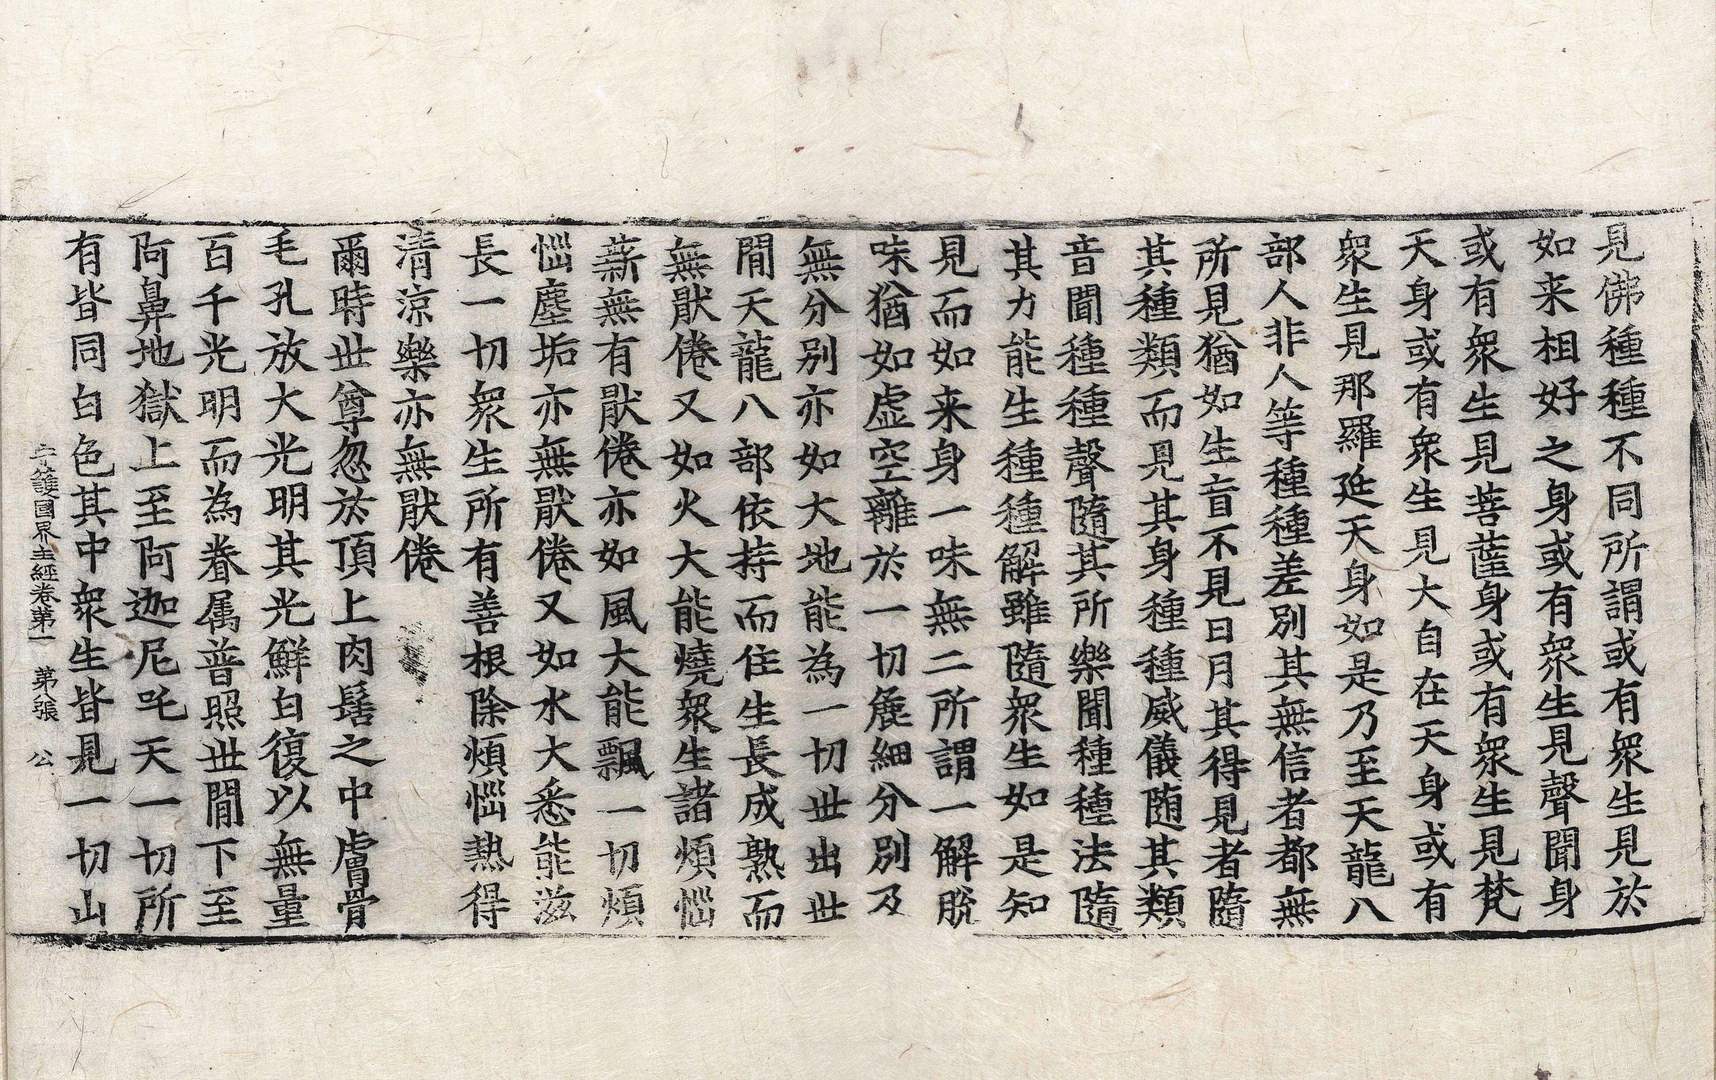 見佛種種不同所謂或有眾生見於
如来相好之身或有眾生見聲聞身
或有眾生見菩薩身或有眾生見梵
天身或有眾生見大自在天身或有
眾生見那羅延天身如是乃至天龍八
部人非人等種種差別其無信者都無
所見猶如生盲不見日月其得見者隨
其種類而見其身種種威儀随其類
音聞種種聲隨其所樂聞種種法隨
其力能生種種解雖隨眾生如是知
見而如来身一味無二所謂一解脫
味猶如虛空離於一切麁細分別及
無分別亦如大地能為一切世出世
間天龍八部依持而住生長成熟而
無猒倦又如火大能燒眾生諸煩惱
薪無有猒倦亦如風大能飄一切煩
惱塵垢亦無猒倦又如水大悉能滋
長一切眾生所有善根除煩惱熱得
清涼樂亦無猒倦
爾時世尊忽於頂上肉髻之中膚骨
毛孔放大光明其光鮮白復以無量
百千光明而為眷属普照世間下至
阿鼻地獄上至阿迦尼吒天一切所
有皆同白色其中眾生皆見一切山
守護國界主經卷第一 第八張 公